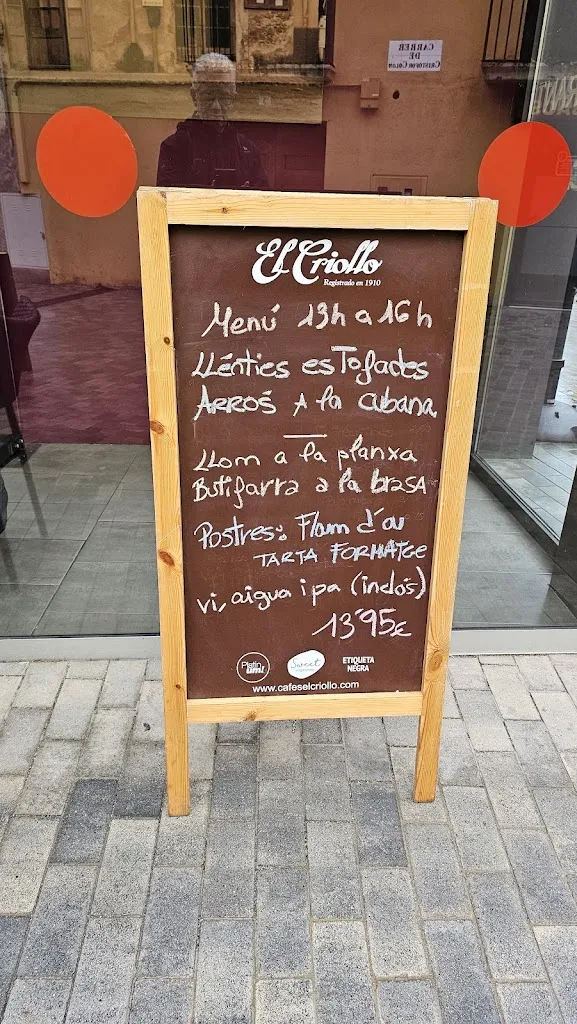 CARRER
DE
CRISTÒFOR COLOM
El Criollo
Registrado en 1910
Menú 13h a 16h
LLénties esTofades
ARROS A la cubana
LLom a la planxa
Butifarra a la brasA
Postres: Flam d'ou
TARTA FORMATGE
vi, aigua i pa (inclós)
13'95€
Platin
um!
Sweet
ETIQUETA
NEGRA
www.cafeselcriollo.com